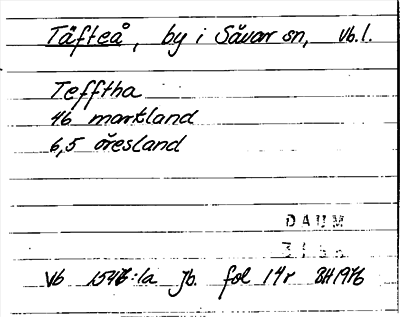 Täfteå, by i Sävar sn, Vb.l.
Tefftha
46 markland
6,5 öresland
DAUM
Vb :1a Jb. fol 14r BH1976